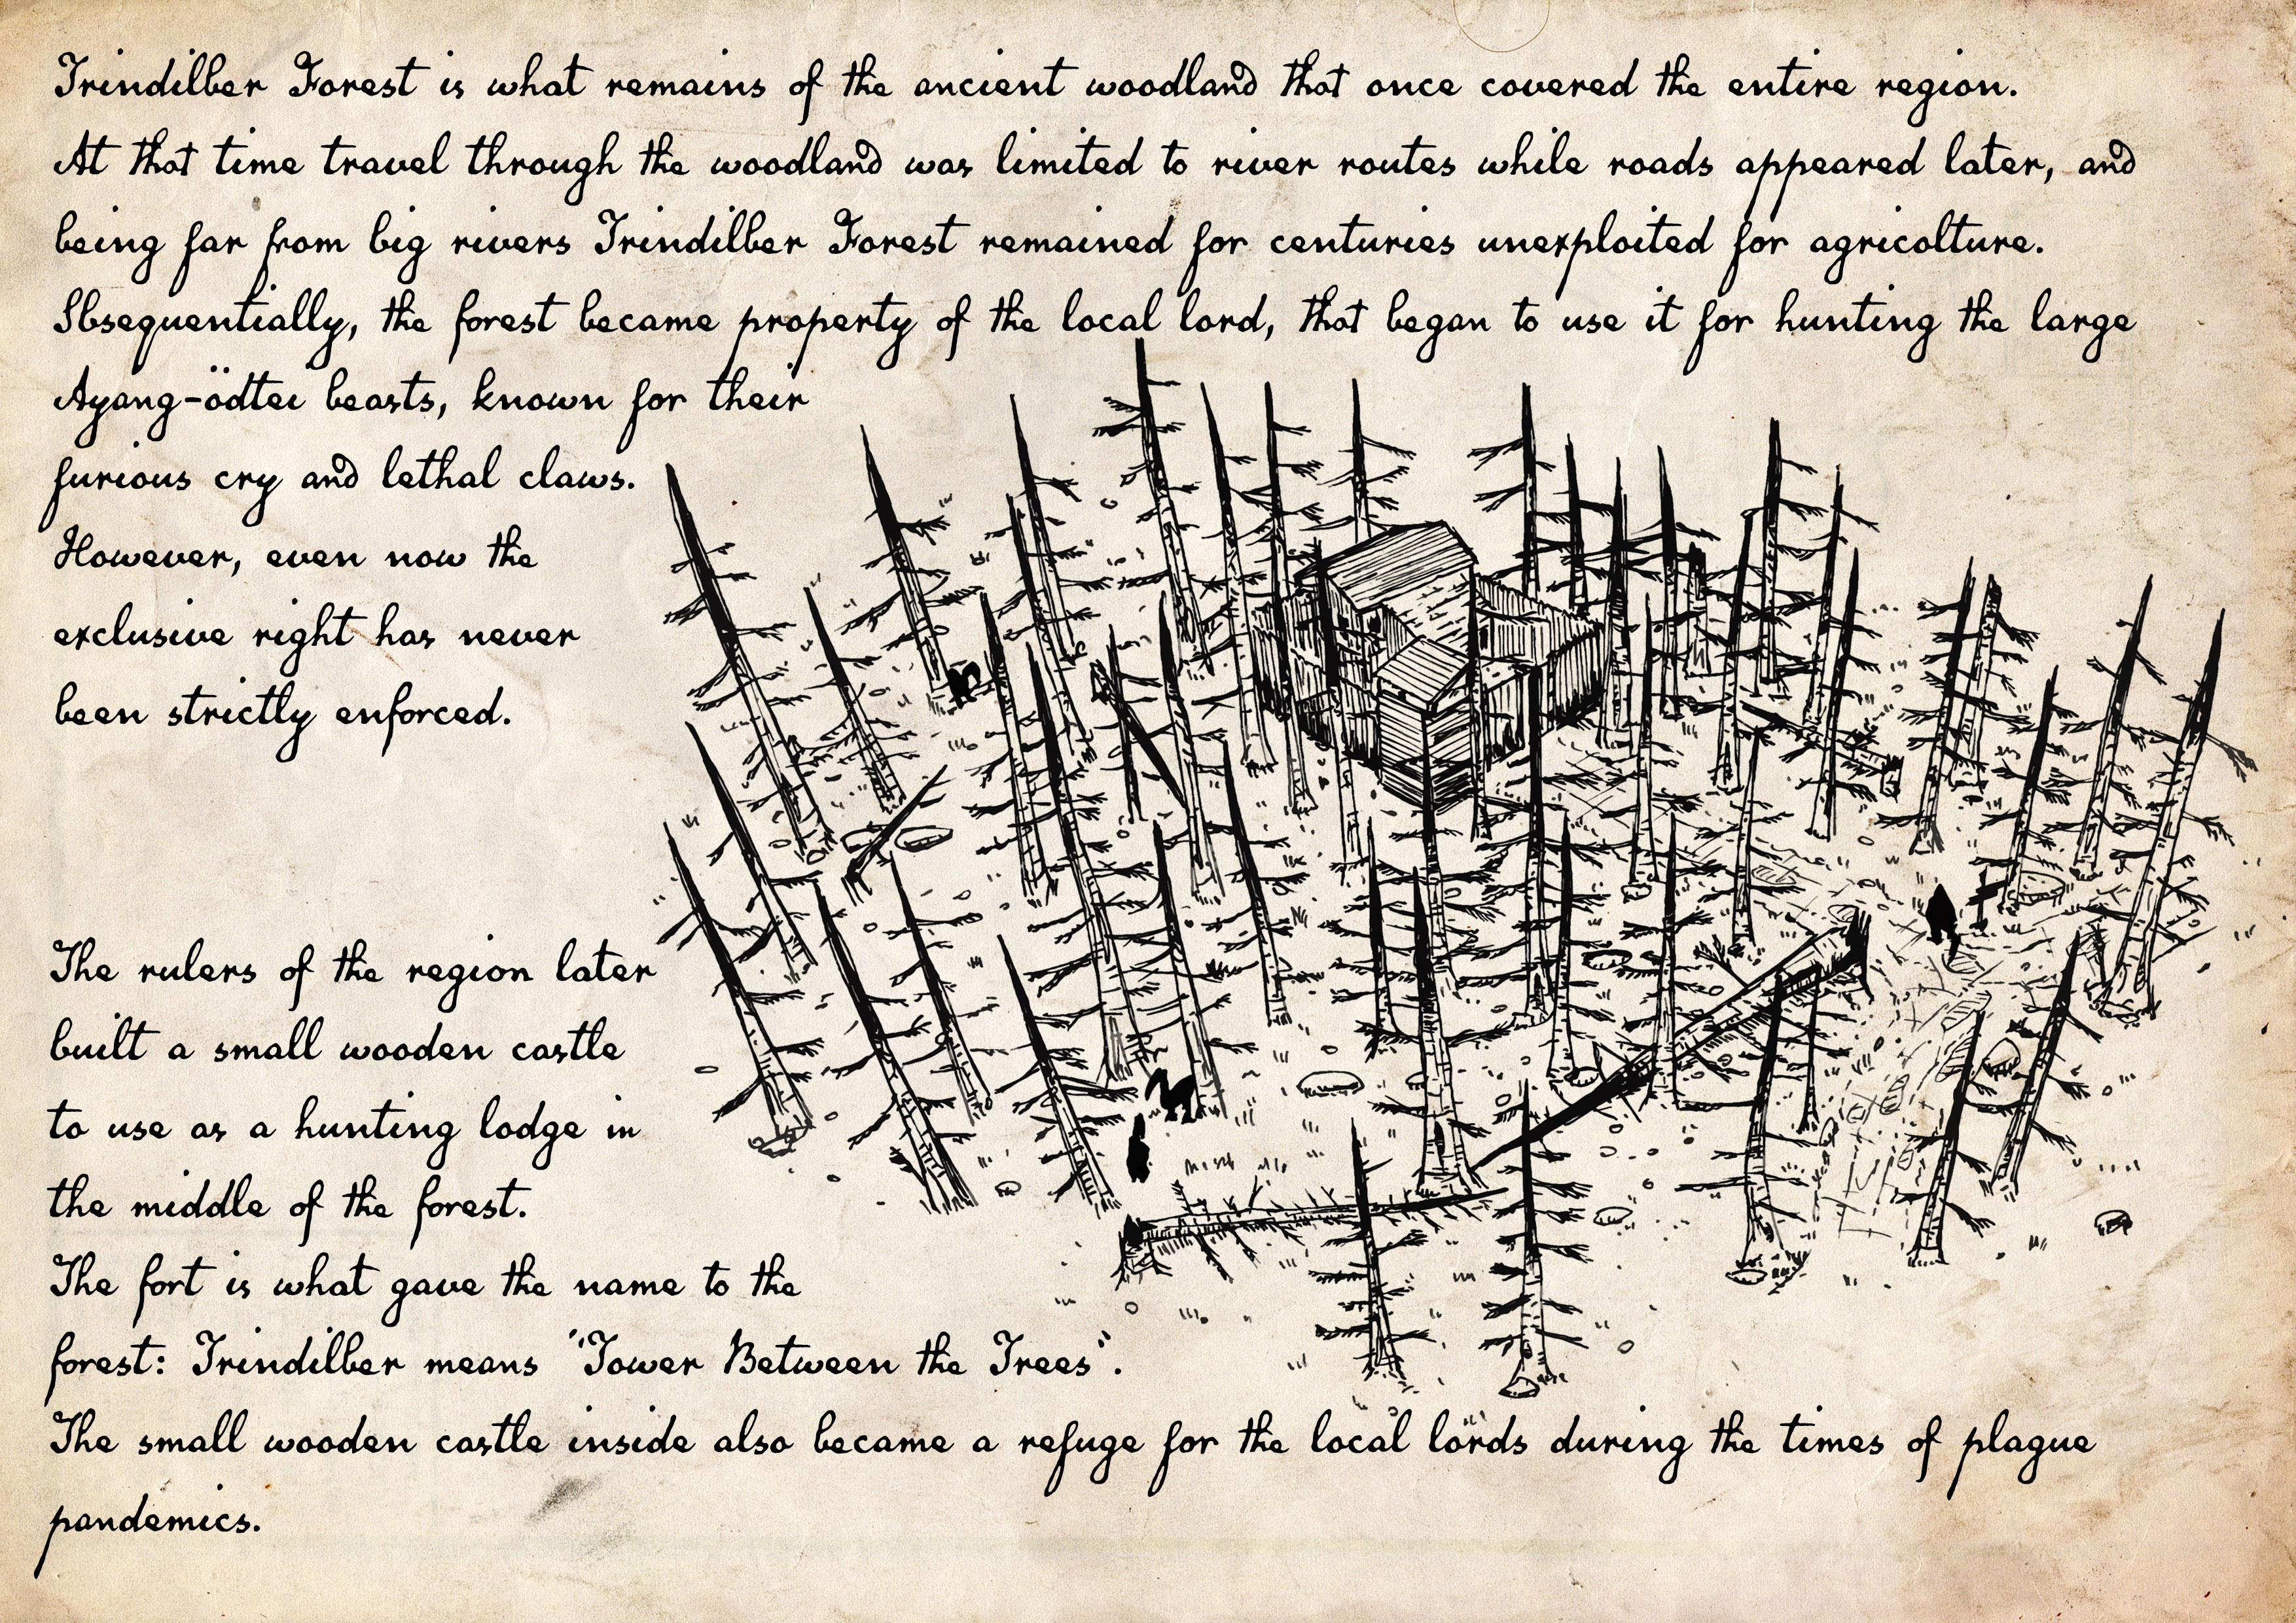 Trindilber Forest is what remains of the ancient woodland that once covered the entire region.
At that time travel through the woodland was limited to river routes while roads appeared later, and
being far from big rivers Trindilber Forest remained for centuries unexploited for agricolture.
Sbsequentially, the forest became property of the local lord, that began to use it for hunting the large
Ayang-ödtei beasts, known for their
furious cry and lethal claws.
However, even now the
exclusive right has never
been strictly enforced.
The rulers of the region later
built a small wooden castle
to use as a hunting lodge in
the middle of the forest.
The fort is what gave the name to the
forest: Trindilber means "Tower Between the Trees".
The small wooden castle inside also became a refuge for the local lords during the times of plague
pandemics.